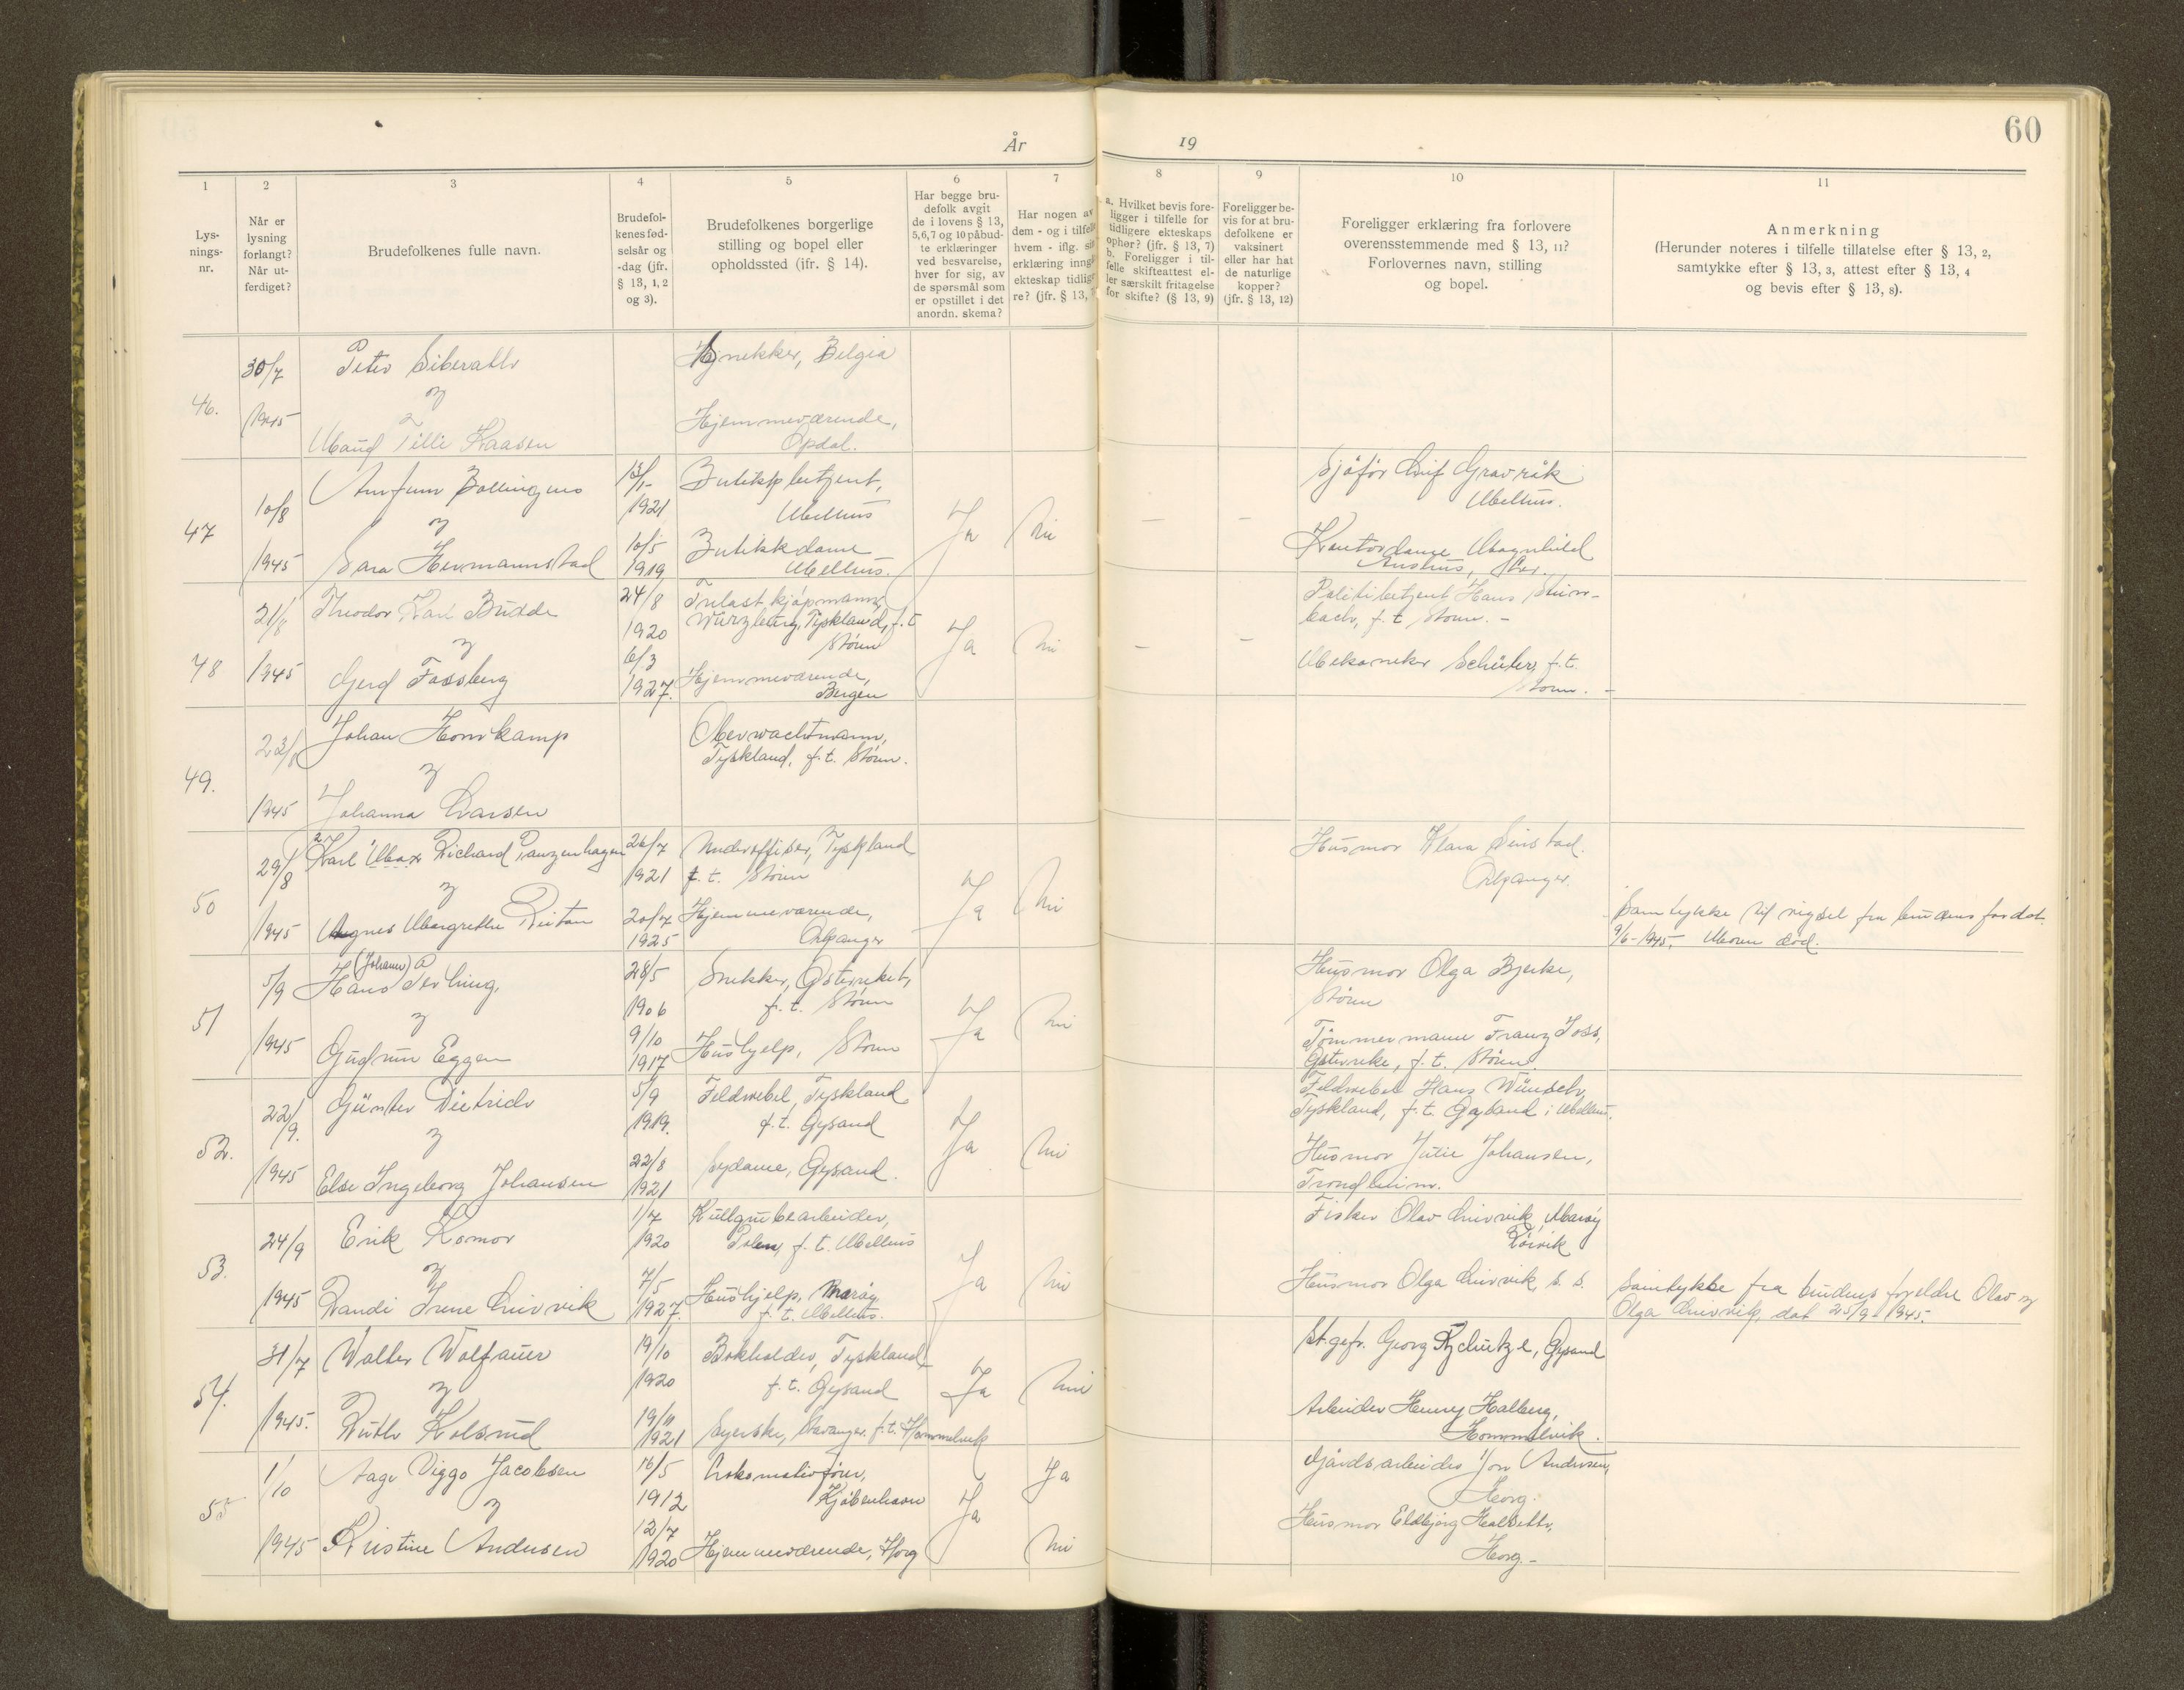 År
19
60
1
2
3
4
5
6
7
8
9
10
11
Lys-
nings-
nr.
Når er
lysning
forlangt?
Når ut-
ferdiget?
Brudefolkenes fulle navn.
Brudefol-
kenes fød-
selsår og
-dag (jfr.
§ 13, 1, 2
og 3).
Brudefolkenes borgerlige
stilling og bopel eller
opholdssted (ifr. § 14).
Har begge bru-
defolk avgit
de i lovens § 13,
5,6,7 og 10 påbud-
te erklæringer
ved besvarelse,
hver for sig, av
de spørsmål som
er opstillet i det
anordn. skema?
Har nogen av
dem - og i tilfelle
hvem - iflg. sin
erklæring inngå
ekteskap tidlige
re? (jfr. § 13,
a. Hvilket bevis fore-
ligger i tilfelle for
tidligere ekteskaps
ophør? (jfr. § 13, 7)
b. Foreligger i til-
felle skifteattest el-
ler særskilt fritagelse
for skifte? (§ 13, 9)
Foreligger be-
vis for at bru-
defolkene er
vaksinert
eller har hat
de naturlige
kopper?
(jfr. § 13, 12)
Foreligger erklæring fra forlovere
overensstemmende med § 13, 11?
Forlovernes navn, stilling
og bopel.
Anmerkning
(Herunder noteres i tilfelle tillatelse efter § 13, 2,
samtykke efter § 13, 3, attest efter § 13, 4
og bevis efter § 13, 8).
46.
30/7
1945
Peter
og
Maud Tilli Kaasen
Belgia
Hjemmeværende,
Opdal.
47
10/8
1945
Arnfinn
og
Sara Hermannstad
13/1-
1921
10/5
1919
Butikkbetjent,
Melhus
Butikkdame
Melhus.
Ja
Nei
—
—
Sjåfør Leif Gravråk
Melhus.
Kontordame Magnhild
48
21/8
1945
Theodor Karl Budde
og
Gerd Fossberg
24/8
1920
6/3
1927.
Trelastkjøpmann,
Würzburg, Tyskland, f.t.
Støren
Hjemmeværende,
Bergen
Ja
Nei
—
—
Politibetjent Hans Stein-
bach, f.t. Støren. -
Mekaniker Schüler, f.t.
Støren. -
49.
23/8
1945
Johan Homkamp
og
Johanna Larsen
Oberwachtmann,
Tyskland, f.t. Støren.
50
29/8
1945
Karl Max Richard Ranzenhagen
og
Agnes Margrethe Reitan
26/7
1921
20/7
1925
Underoffiser, Tyskland
f.t. Støren
Hjemmeværende,
Orkanger
Ja
Nei
Husmor Klara
Orkanger.
Samtykke til vigsel fra brudens far dat.
9/6-1945. Moren død.
51
5/9
1945
(Johann)
Hans Perling,
og
Gudrun Eggen
28/5
1906
9/10
1917
Snekker, Østerriket,
f.t. Støren
Hushjelp, Støren
Ja
Nei
Husmor Olga Bjerke,
Støren
Tømmermann Franz Joss,
Østerrike, f.t. Støren.
52.
22/9.
1945
Günter Dietrich
og
Else Ingeborg Johansen
5/9
1919.
22/8
1921
Feldwebel, Tyskland
f.t. Øysand
Sydame, Øysand.
Ja
Nei
Feldwebel Hans Wünsch,
Tyskland, f.t. Øysand i Melhus.
Husmor Jutie Johansen,
Trondheim.
53.
24/9
1945
Erik Komor
og
Randi Irene Leirvik
1/7
1920
7/5
1927.
Kullgrubearbeider,
Polen, f.t. Melhus
Hushjelp, Marøy
f.t. Melhus.
Ja
Nei
Fisker Olav Leirvik, Marøy
Rørvik
Husmor Olga Leirvik, s. s.
Samtykke fra brudens foreldre Olav og
Olga Leirvik, dat 25/9-1945.
54.
31/7
1945.
Walter Wolfauer
og
Ruth Kolsrud
19/10
1920
19/11
1921
Bokholder, Tyskland
f.t. Øysand
Syerske, Stavanger f.t. Hommelvik
Ja
Nei
St.gefr. Georg Øysand
Arbeider Henry Halberg,
Hommelvik.
55
1/10
1945
Aage Viggo Jacobsen
og
Kristine Andersen
16/5
1912
12/7
1920
Lokomotivfører,
Kjøbenhavn
Hjemmeværende, Horg
Ja
Ja
Nei
Gårdsarbeider Jon Andersen,
Horg.
Husmor Eldbjørg Halseth,
Horg.-